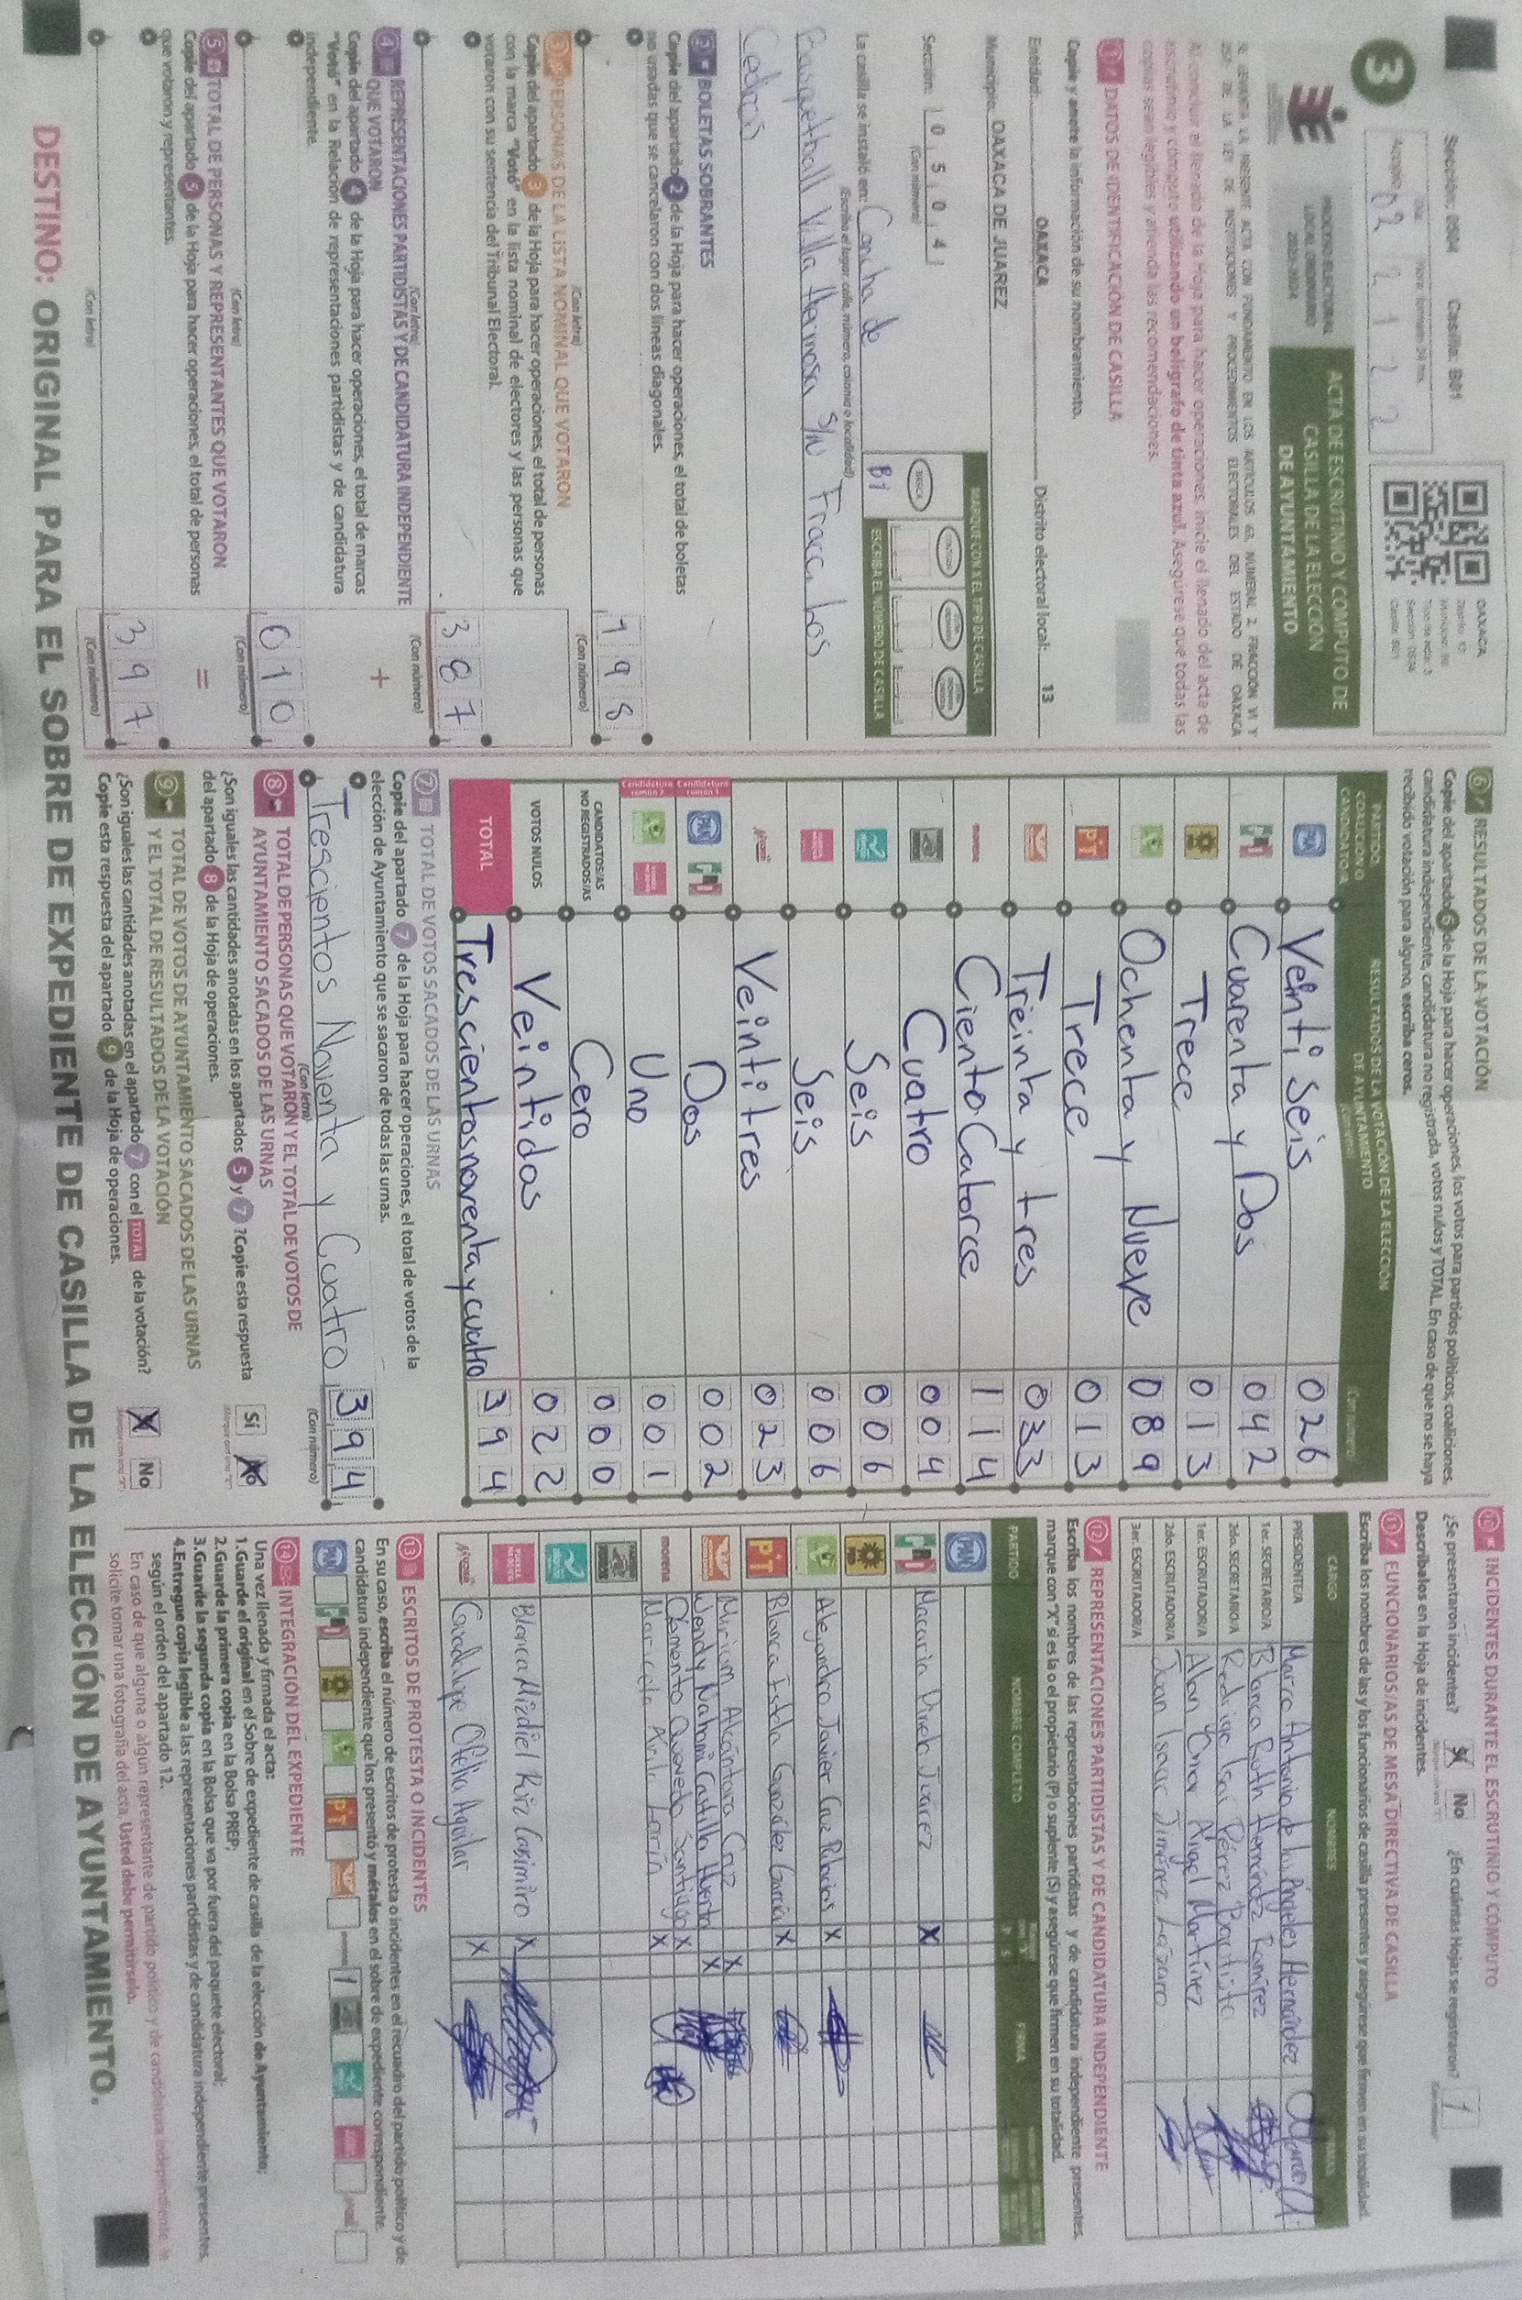 Sección: 0504 Casilla: B01
Día Hora: formato 24 hrs.
Acopio: 02 2 1 2 2
OAXACA
Sección: 0504
Casilla: B01
3
PROCESO ELECTORAL
LOCAL ORDINARIO
2023-2024
ACTA DE ESCRUTINIO Y CÓMPUTO DE
CASILLA DE LA ELECCIÓN
DE AYUNTAMIENTO
SE LEVANTA LA PRESENTE ACTA CON FUNDAMENTO EN LOS ARTÍCULOS 63, NUMERAL 2, FRACCIÓN VI Y
DE LA LEY DE INSTITUCIONES Y PROCEDIMIENTOS ELECTORALES DEL ESTADO DE OAXACA
Al concluir el llenado de la Hoja para hacer operaciones, inicie el llenado del acta de
escrutinio y cómputo utilizando un bolígrafo de tinta azul. Asegúrese que todas las
copias sean legibles y atienda las recomendaciones.
1 DATOS DE IDENTIFICACIÓN DE CASILLA
Copie y anote la información de su nombramiento.
Entidad: OAXACA Distrito electoral local: 13
Municipio: OAXACA DE JUAREZ
Sección: 0 5 0 4
(Con número)
MARQUE CON X EL TIPO DE CASILLA
BÁSICA
B1
ESCRIBA EL NÚMERO DE CASILLA
La casilla se instaló en: Cancha de
(Escriba el lugar: calle, número, colonia o localidad)
Basquetball Villa Hermosa S/N Fracc. Los
Cedros
2 BOLETAS SOBRANTES
Copie del apartado 2 de la Hoja para hacer operaciones, el total de boletas
no usadas que se cancelaron con dos líneas diagonales.
198
(Con letra) (Con número)
3 PERSONAS DE LA LISTA NOMINAL QUE VOTARON
Copie del apartado 3 de la Hoja para hacer operaciones, el total de personas
con la marca "Votó" en la lista nominal de electores y las personas que
votaron con su sentencia del Tribunal Electoral.
387
(Con letra) (Con número)
4 REPRESENTACIONES PARTIDISTAS Y DE CANDIDATURA INDEPENDIENTE
QUE VOTARON
+
Copie del apartado 4 de la Hoja para hacer operaciones, el total de marcas
"Votó" en la Relación de representaciones partidistas y de candidatura
independiente.
010
(Con letra) (Con número)
5 TOTAL DE PERSONAS Y REPRESENTANTES QUE VOTARON
=
Copie del apartado 5 de la Hoja para hacer operaciones, el total de personas
que votaron y representantes.
397
(Con letra) (Con número)
6 RESULTADOS DE LA VOTACIÓN
Copie del apartado 6 de la Hoja para hacer operaciones, los votos para partidos políticos, coaliciones,
candidatura independiente, candidatura no registrada, votos nulos y TOTAL. En caso de que no se haya
recibido votación para alguno, escriba ceros.
PARTIDO
COALICIÓN O
CANDIDATO/A
RESULTADOS DE LA VOTACIÓN DE LA ELECCIÓN
DE AYUNTAMIENTO
(Con letra) (Con número)
PAN Veinti seis 026
PRI Cuarenta y Dos 042
Trece 013
Ochenta y Nueve 089
PT Trece 013
Treinta y tres 033
morena Ciento Catorce 114
Cuatro 004
Seis 006
Seis 006
Veinti tres 023
Candidatura común 1 PAN PRI Dos 002
Candidatura común 2 Uno 001
CANDIDATOS/AS
NO REGISTRADOS/AS Cero 000
VOTOS NULOS Veintidos 022
TOTAL Trescientos noventa y cuatro 394
7 TOTAL DE VOTOS SACADOS DE LAS URNAS
Copie del apartado 7 de la Hoja para hacer operaciones, el total de votos de la
elección de Ayuntamiento que se sacaron de todas las urnas.
Trescientos Noventa y Cuatro 394
(Con letra) (Con número)
8 TOTAL DE PERSONAS QUE VOTARON Y EL TOTAL DE VOTOS DE
AYUNTAMIENTO SACADOS DE LAS URNAS
¿Son iguales las cantidades anotadas en los apartados 5 y 7? Copie esta respuesta
del apartado 8 de la Hoja de operaciones.
Sí No
9 TOTAL DE VOTOS DE AYUNTAMIENTO SACADOS DE LAS URNAS
Y EL TOTAL DE RESULTADOS DE LA VOTACIÓN
¿Son iguales las cantidades anotadas en el apartado 7 con el TOTAL de la votación?
Copie esta respuesta del apartado 9 de la Hoja de operaciones.
X No
10 INCIDENTES DURANTE EL ESCRUTINIO Y CÓMPUTO
¿Se presentaron incidentes? Sí No ¿En cuántas Hojas se registraron? 1
Descríbalos en la Hoja de incidentes.
11 FUNCIONARIOS/AS DE MESA DIRECTIVA DE CASILLA
Escriba los nombres de las y los funcionarios de casilla presentes y asegúrese que firmen en su totalidad.
CARGO NOMBRES FIRMAS
PRESIDENTE/A Marco Antonio de los Ángeles Hernández
1er. SECRETARIO/A Blanca Ruth Hernández Ramírez
2do. SECRETARIO/A Rodrigo Isaí Pérez Bautista
1er. ESCRUTADOR/A Alan Omar Ángel Martínez
2do. ESCRUTADOR/A Juan Isaac Jiménez Lázaro
3er. ESCRUTADOR/A
12 REPRESENTACIONES PARTIDISTAS Y DE CANDIDATURA INDEPENDIENTE
Escriba los nombres de las representaciones partidistas y de candidatura independiente presentes,
marque con "X" si es la o el propietario (P) o suplente (S) y asegúrese que firmen en su totalidad.
PARTIDO NOMBRE COMPLETO P S FIRMA
PAN
PRI Macario Pineda Juárez X
PRD
Alejandro Javier Cruz Palacios X
PT Blanca Estela González García X
Miriam Alcántara Cruz X
Wendy Nahomi Castillo Huerta X
Clemente Quevedo Santiago X
morena Maricela
X
Blanca Mizdiel Ruiz Casimiro X
Guadalupe Ofelia Aguilar X
13 ESCRITOS DE PROTESTA O INCIDENTES
En su caso, escriba el número de escritos de protesta o incidentes en el recuadro del partido político y de
candidatura independiente que los presentó y métalos en el sobre de expediente correspondiente.
PAN PRI PRD PT morena 1
14 INTEGRACIÓN DEL EXPEDIENTE
Una vez llenada y firmada el acta:
1.Guarde el original en el Sobre de expediente de casilla de la elección de Ayuntamiento;
2.Guarde la primera copia en la Bolsa PREP;
3.Guarde la segunda copia en la Bolsa que va por fuera del paquete electoral;
4.Entregue copia legible a las representaciones partidistas y de candidatura independiente presentes,
según el orden del apartado 12.
En caso de que alguna o algún representante de partido político y de candidatura independiente le
solicite tomar una fotografía del acta, Usted debe permitírselo.
DESTINO: ORIGINAL PARA EL SOBRE DE EXPEDIENTE DE CASILLA DE LA ELECCIÓN DE AYUNTAMIENTO.